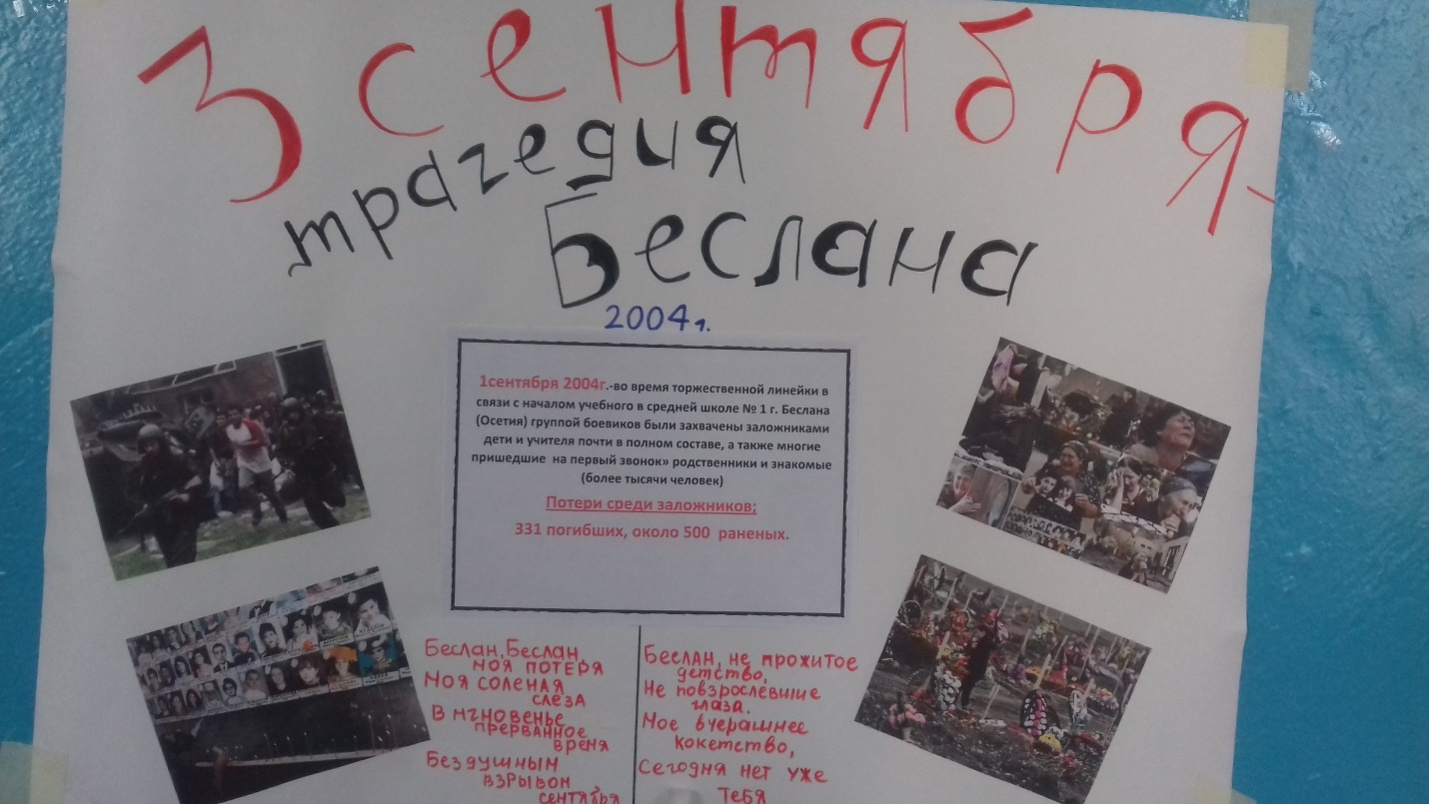 3 сентября-
трагедия
Беслана
2004г.
1сентября 2004г.-во время торжественной линейки в
связи с началом учебного в средней школе № 1 г. Беслана
(Осетия) группой боевиков были захвачены заложниками
дети и учителя почти в полном составе, а также многие
пришедшие на первый звонок» родственники и знакомые
(более тысячи человек)
Потери среди заложников;
331 погибших, около 500 раненых.
Беслан, Беслан,
моя потеря
Моя соленая
слеза
В мгновенье
прерванное
время
Бездушным
взрывом
сентября
Беслан, не прожитое
детство,
Не повзрослевшие
глаза.
Мое вчерашнее
кокетство,
Сегодня нет уже
тебя